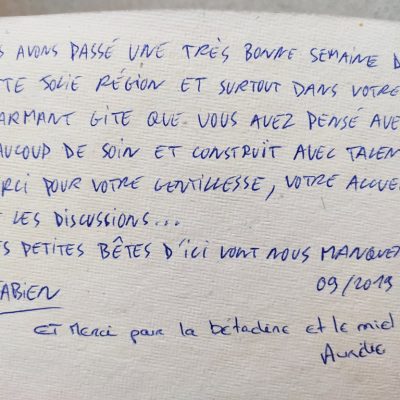 S AVONS PASSÉ UNE TRÈS BONNE SEMAINE D
TTE JOLIE RÉGION ET SURTOUT DANS VOTRE
ARMANT GITE QUE VOUS AVEZ PENSÉ AVE
AUCOUP DE SOIN ET CONSTRUIT AVEC TALEN
RCI POUR VOTRE GENTILLESSE, VOTRE ACCUE
T LES DISCUSSIONS...
ES PETITES BÊTES D'ICI VONT NOUS MANQUE
FABIEN 09/2019
ET Merci pour la bétadine et le miel
Aurélie